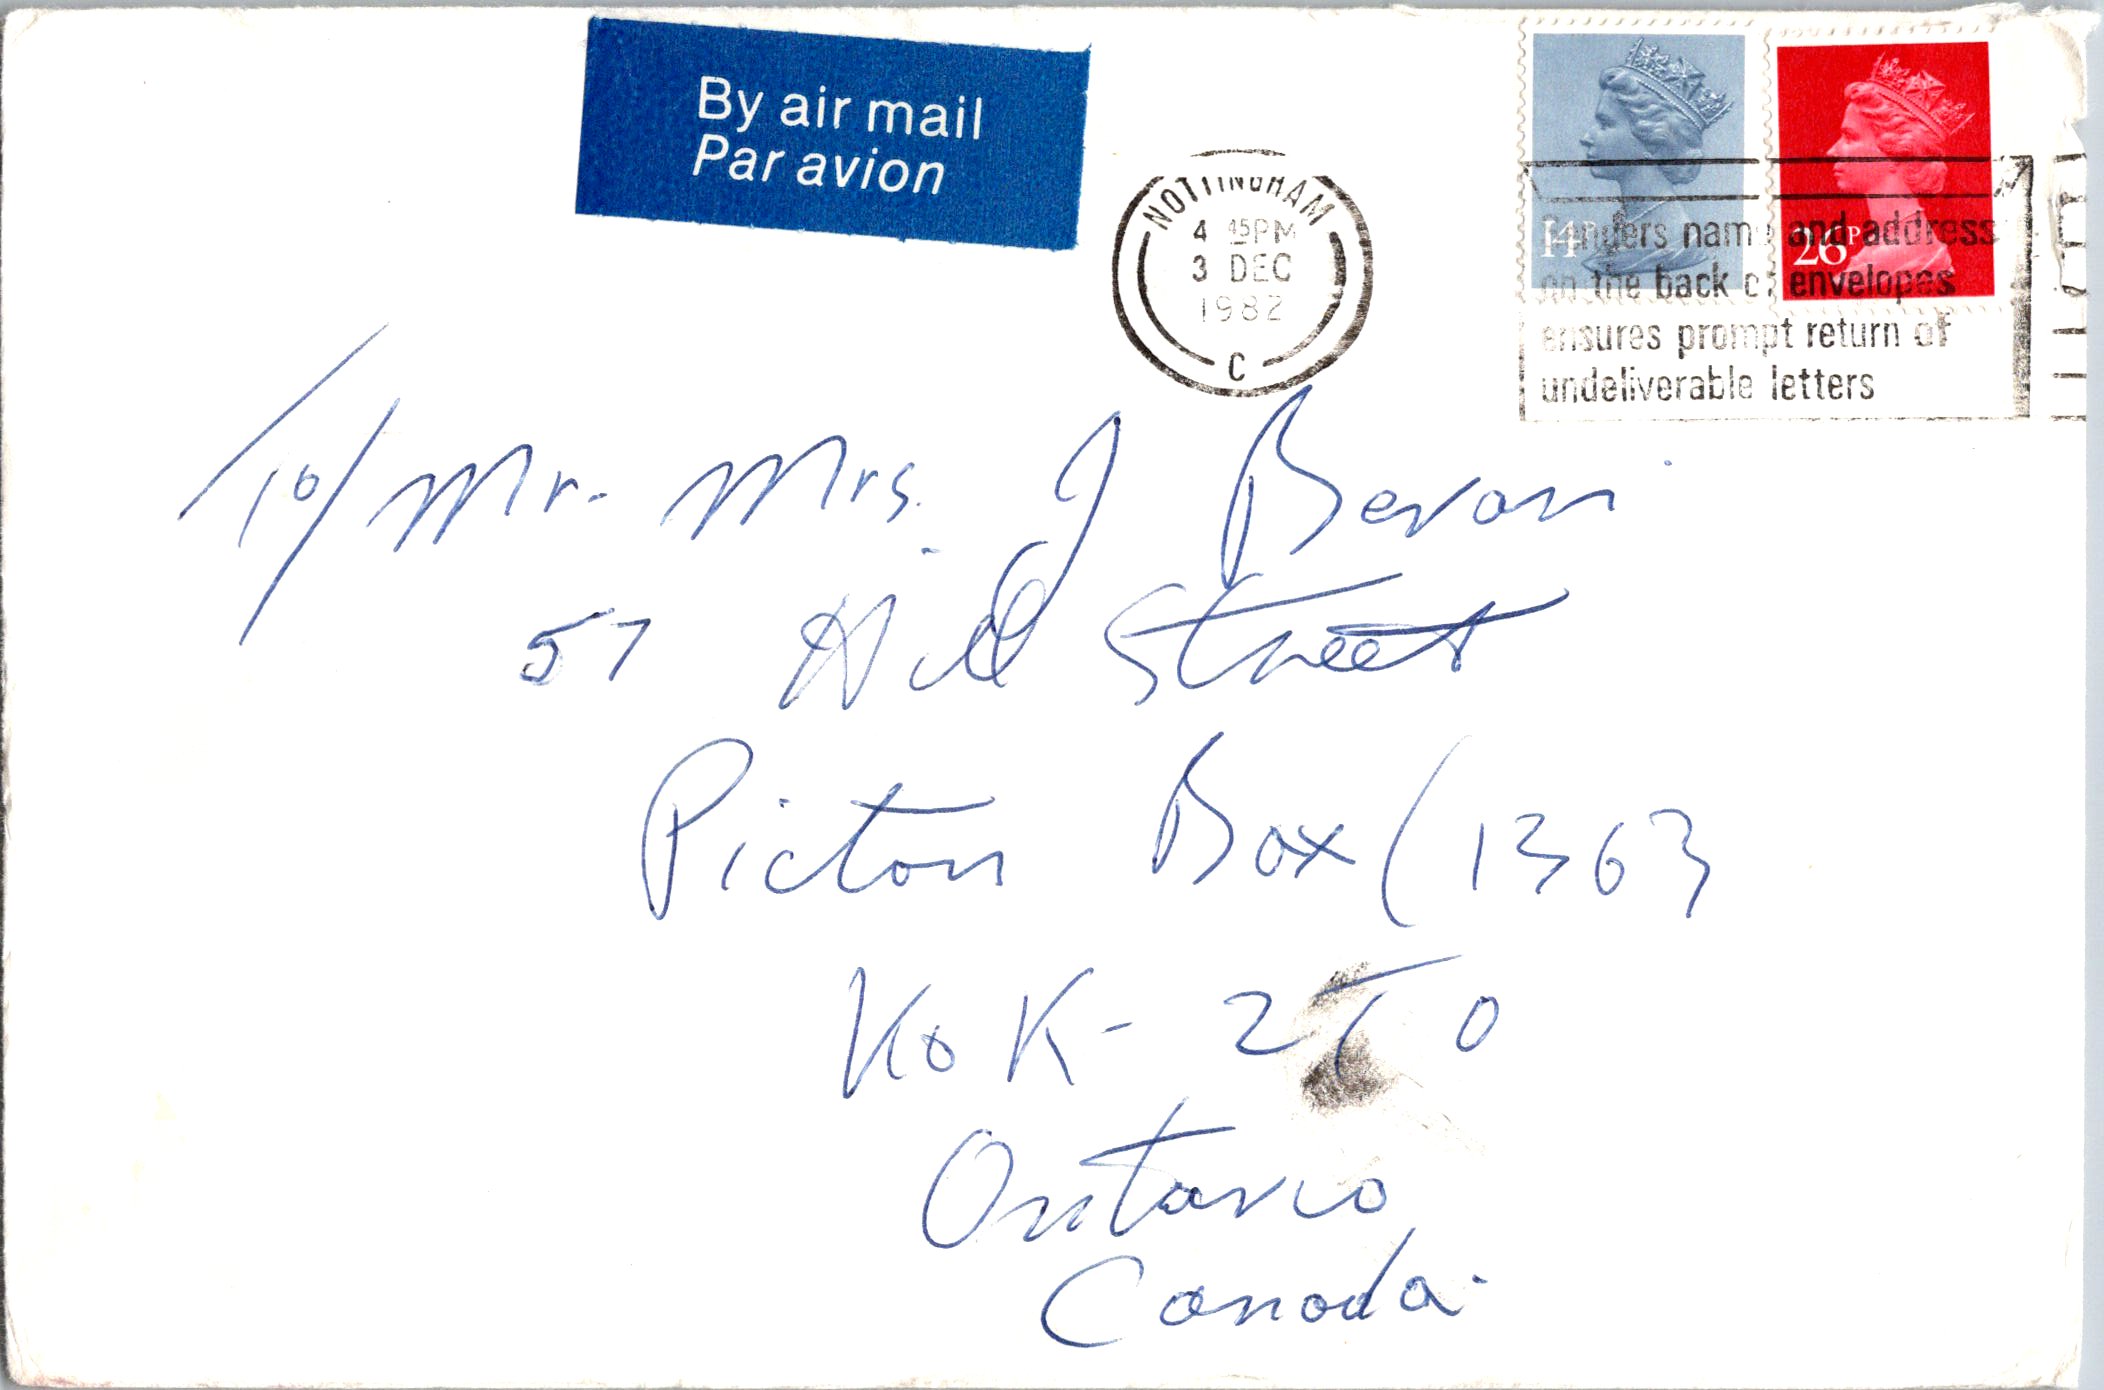 By air mail
Par avion
NOTTINGHAM
4 45PM
3 DEC
1982
C
14P
26P
Senders name and address
on the back of envelopes
ensures prompt return of
undeliverable letters
To/ Mr. Mrs. J Bevan
57 Hill Street
Picton Box (1363
K0K-2T0
Ontario
Canada